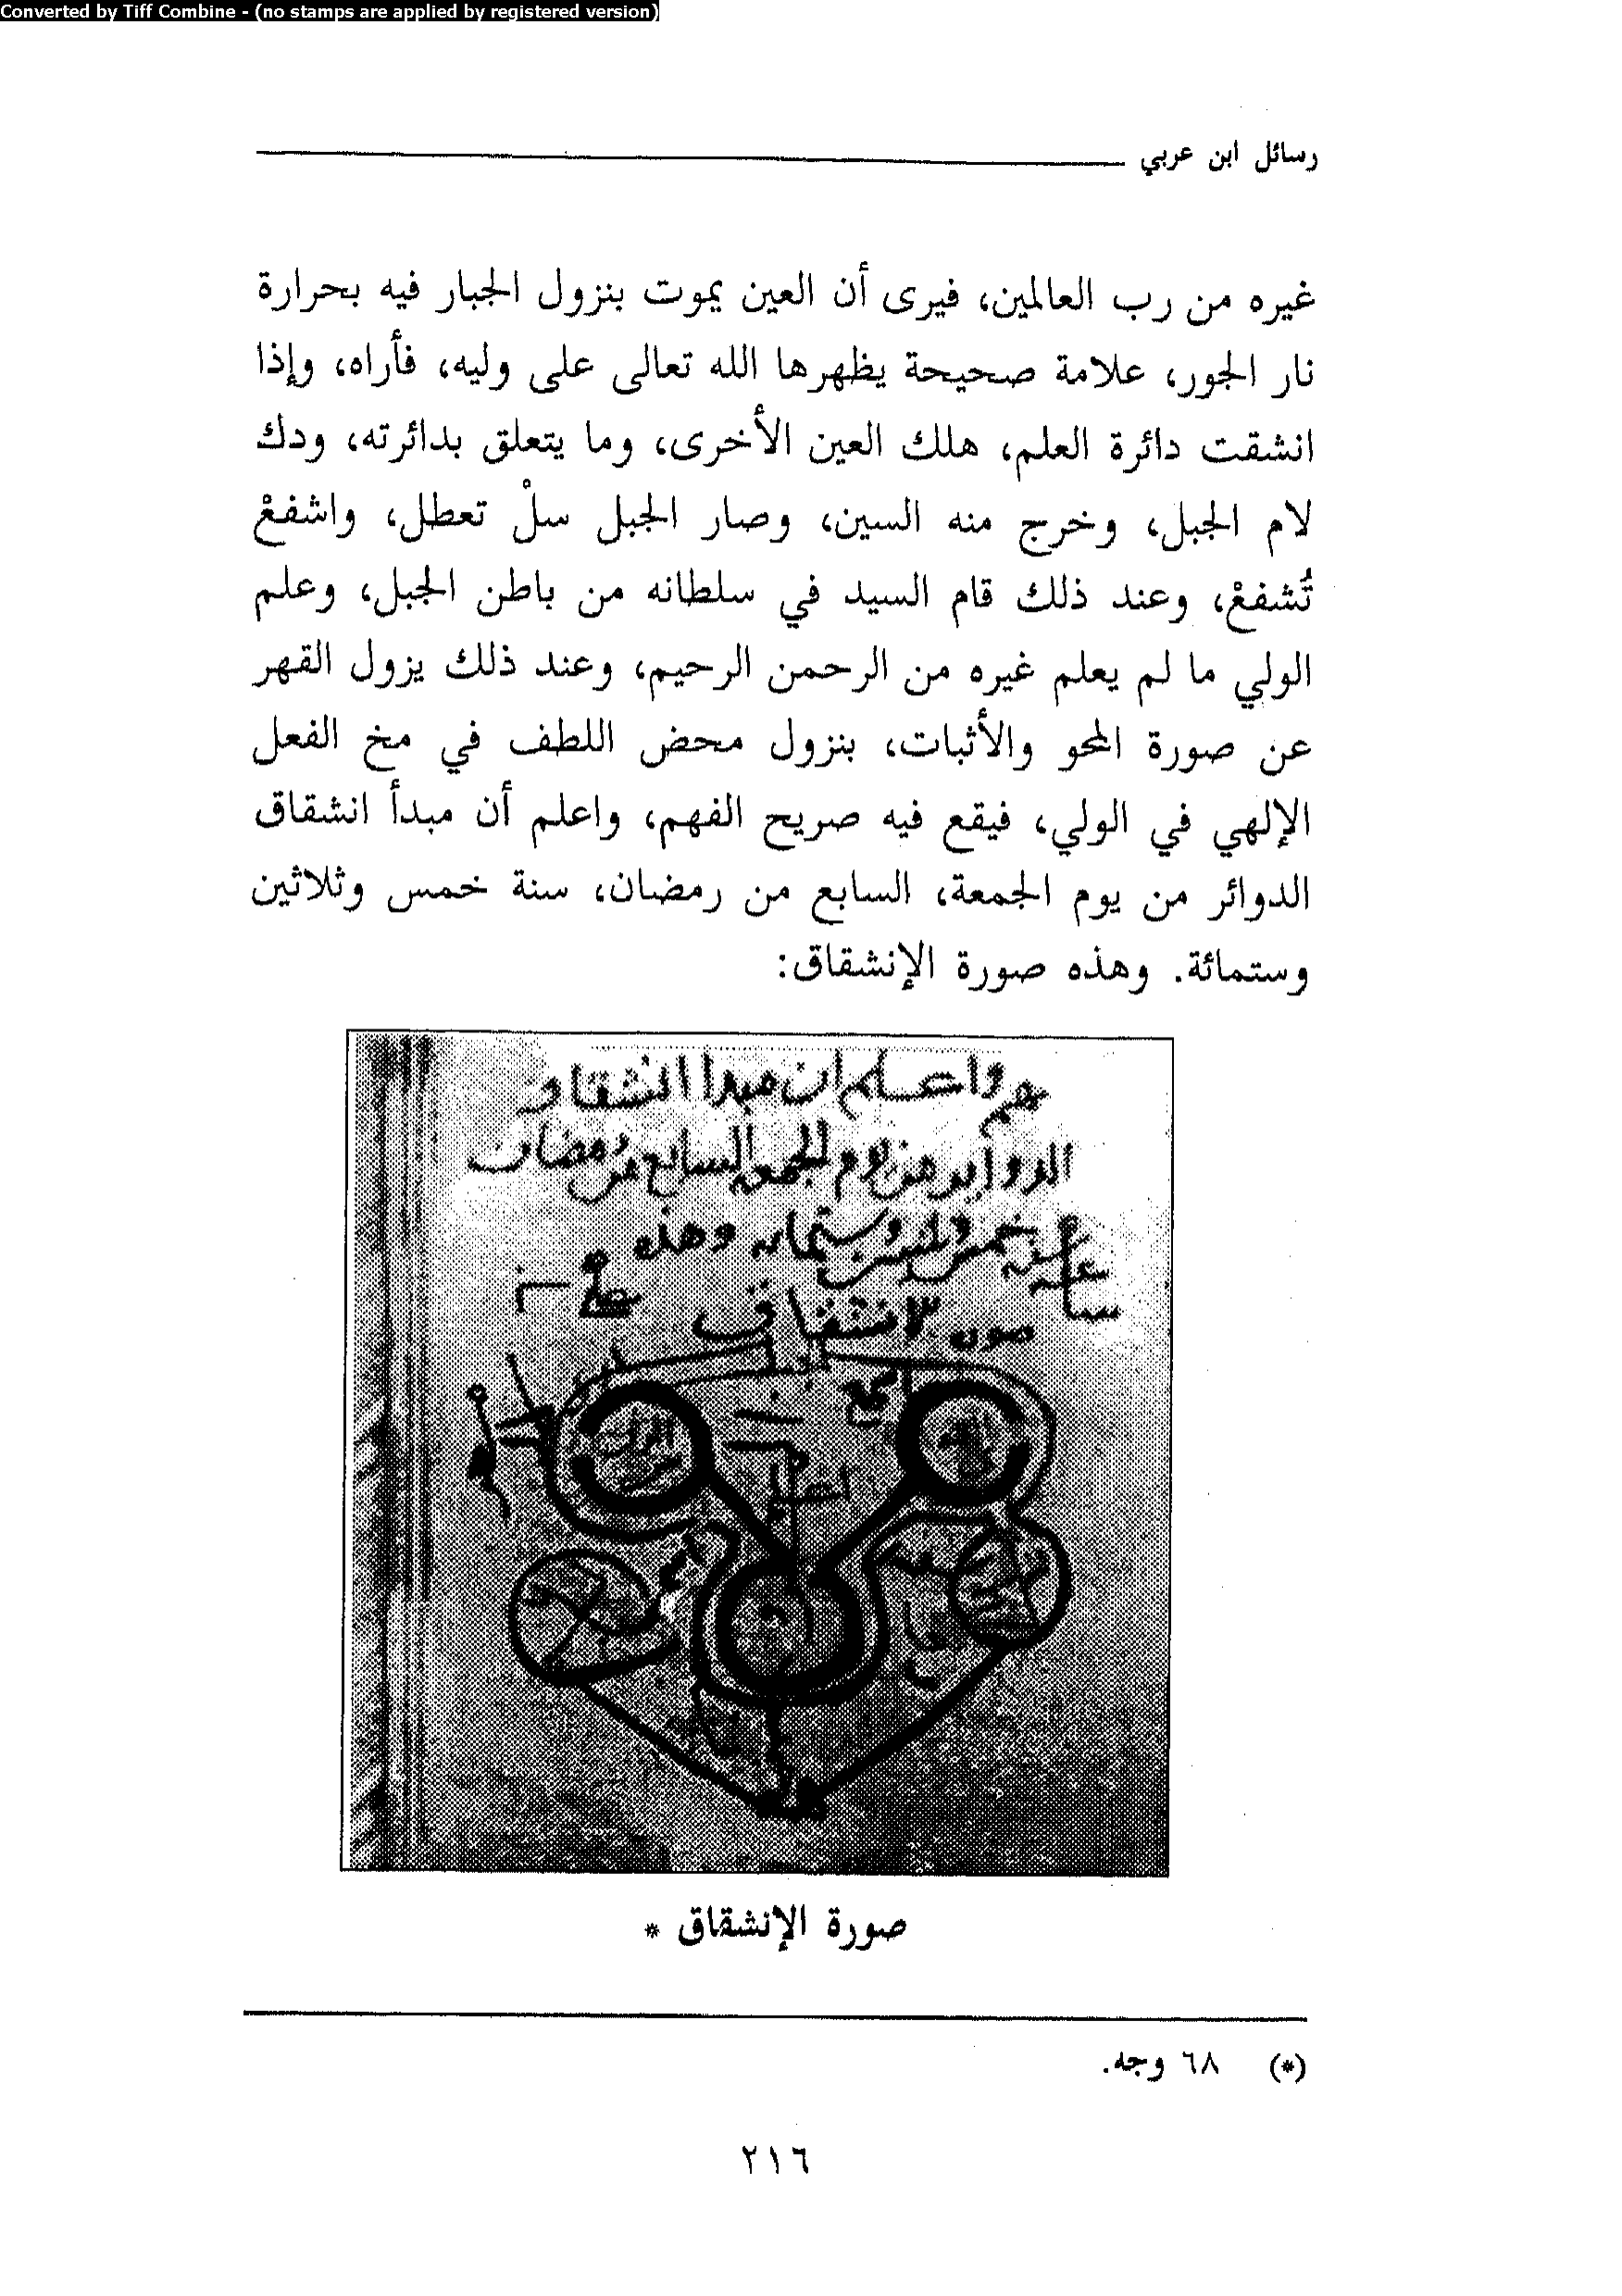 Converted by Tiff Combine - (no stamps are applied by registered version)
رسائل ابن عربي
غيره من رب العالمين، فيرى أن العين يموت بنزول الجبار فيه بحرارة
نار الجور، علامة صحيحة يظهرها الله تعالى على وليه، فأراه، وإذا
انشقت دائرة العلم، هلك العين الأخرى، وما يتعلق بدائرته، ودك
لام الجبل، وخرج منه السين، وصار الجبل سلْ تعطل، واشفعْ
تُشفعْ، وعند ذلك قام السيد في سلطانه من باطن الجبل، وعلم
الولي ما لم يعلم غيره من الرحمن الرحيم، وعند ذلك يزول القهر
عن صورة المحو والأثبات، بنزول محض اللطف في مخ الفعل
الإلهي في الولي، فيقع فيه صريح الفهم، واعلم أن مبدأ انشقاق
الدوائر من يوم الجمعة، السابع من رمضان، سنة خمس وثلاثين
وستمائة. وهذه صورة الإنشقاق:
واعلم ان مبدا انشقاق
الدواير من يوم الجمعه السابع من رمضان
سنه خمس وثلثين وستمايه وهذه
صوره الانشقاق
صورة الإنشقاق *
(*) ٦٨ وجه.
٢١٦